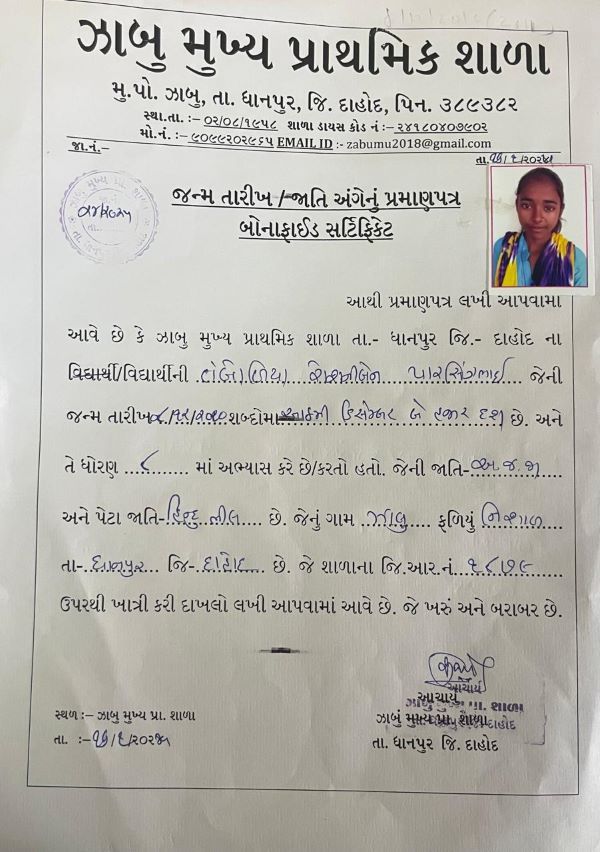 ઝાબુ મુખ્ય પ્રાથમિક શાળા
મુ.પો. ઝાબુ, તા. ધાનપુર, જિ. દાહોદ, પિન. ૩૮૯૩૮૨
સ્થા.તા. :– ૦૨/૦૮/૧૯૫૮ શાળા ડાયસ કોડ નં :– ૨૪૧૮૦૪૦૭૯૦૨
મો.નં. :– ૯૦૯૯૨૦૨૯૬૫ EMAIL ID :- zabumu2018@gmail.com
જા.નં.–
તા.
જન્મ તારીખ /જાતિ અંગેનું પ્રમાણપત્ર
બોનાફાઈડ સર્ટિફિકેટ
આથી પ્રમાણપત્ર લખી આપવામાં
આવે છે કે ઝાબુ મુખ્ય પ્રાથમિક શાળા તા.– ધાનપુર જિ.– દાહોદ ના
વિદ્યાર્થી/વિદ્યાર્થીની પારસિંગભાઈ જેની
જન્મ તારીખ ૮/૧૨/૨૦૧૦ શબ્દોમાં આઠમી ડિસેમ્બર બે હજાર દશ છે. અને
તે ધોરણ ૮ માં અભ્યાસ કરે છે/કરતો હતો. જેની જાતિ– અ.જ.જા
અને પેટા જાતિ– હિન્દુ ભીલ છે. જેનું ગામ ઝાબુ ફળિયું નિશાળ
તા– ધાનપુર જિ– દાહોદ છે. જે શાળાના જિ.આર.નં. ૧૮૭૯
ઉપરથી ખાત્રી કરી દાખલો લખી આપવામાં આવે છે. જે ખરું અને બરાબર છે.
આચાર્ય
સ્થળ :– ઝાબુ મુખ્ય પ્રા. શાળા
ઝાબું મુખ્ય પ્રા. શાળા
તા. :–
તા. ધાનપુર જિ. દાહોદ